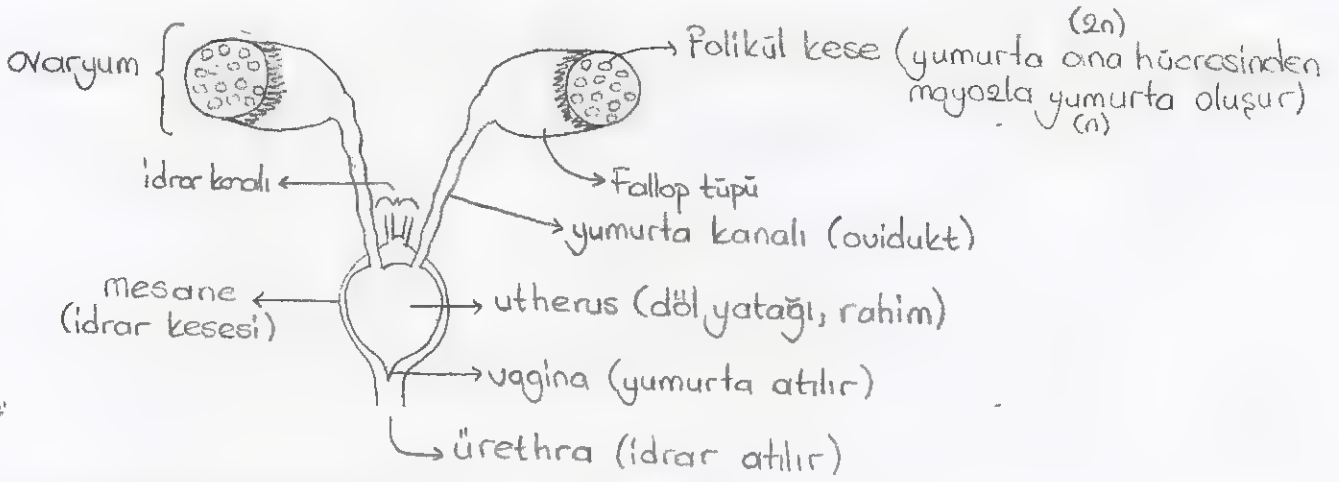 ovaryum
(2n)
Folikül kese (yumurta ana hücresinden
mayozla yumurta oluşur)
(n)
idrar kanalı
Fallop tüpü
yumurta kanalı (ovidukt)
mesane
(idrar kesesi)
utherus (döl yatağı, rahim)
vagina (yumurta atılır)
ürethra (idrar atılır)